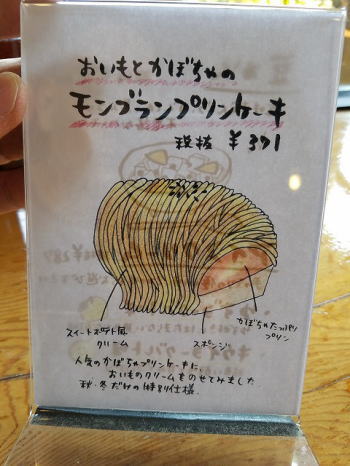 おいもとかぼちゃの
モンブランプリンケーキ
税抜 ¥371
スイートポテト風
クリーム
スポンジ
かぼちゃたっぷり
プリン
人気のかぼちゃプリンケーキに、
おいものクリームものせてみました
秋・冬だけの特別仕様。